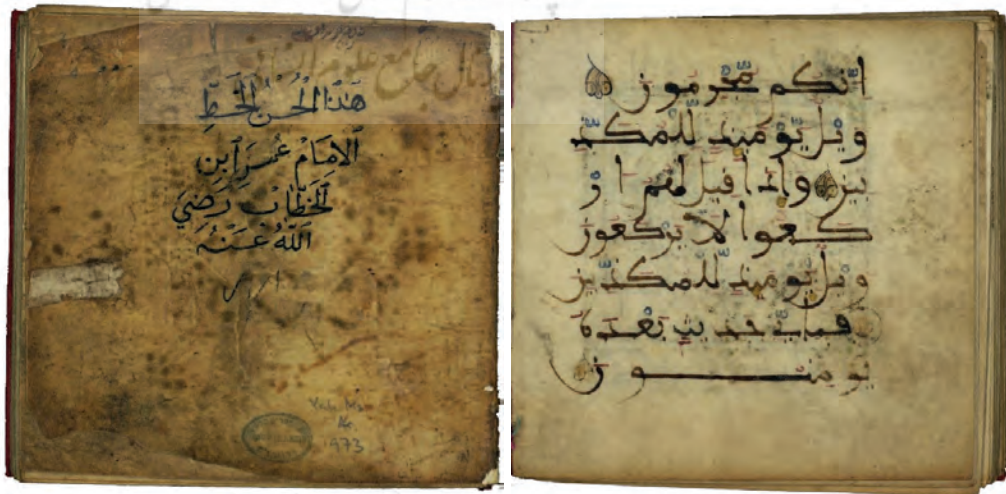 جامع علوم
هَذَا الْحُسْنُ الْخَطِّ
الإِمَامْ عُمَرَ ابْنِ
الْخَطَّابْ رَضِيَ
اللَّهُ عَنْهُ
Yah. Ms.
Ar.
973
إنّكم مّجرمون
ويل يومئذ لّلمكذّ
بين وإذا قيل لهم ا ر
كعوا لا يركعون
ويل يومئذ لّلمكذّبين
فبأيّ حديث بعده
يومنون